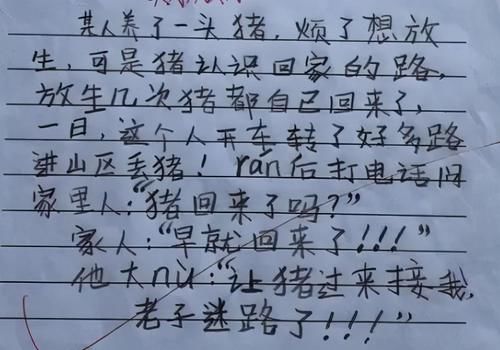 某人养了一头猪，烦了想放
生，可是猪认识回家的路，
放生几次猪都自己回来了，
一日，这个人开车转了好多路
进山区丢猪！rán后打电话问
家里人：“猪回来了吗？”
家人：“早就回来了！！！”
他大nù：“让猪过来接我，
老子迷路了！！！”